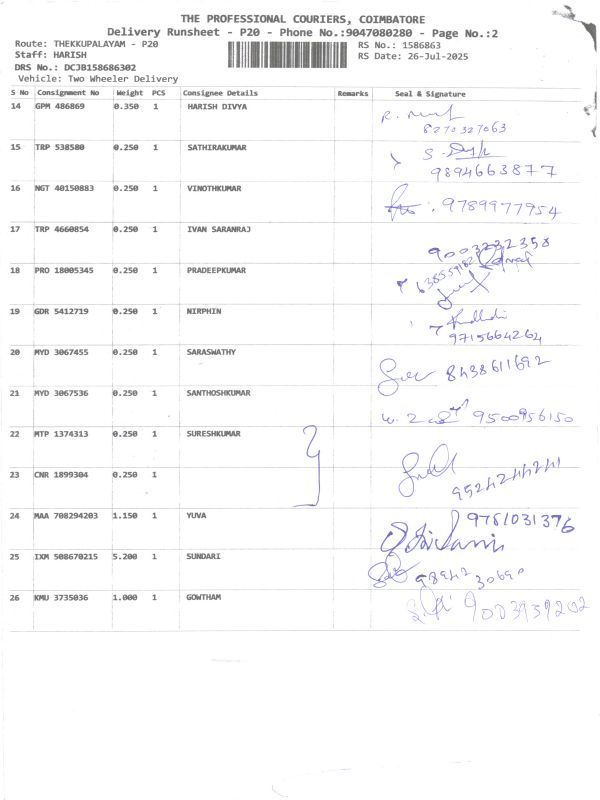 THE PROFESSIONAL COURIERS, COIMBATORE
Delivery Runsheet - P20 - Phone No.:9047080280 - Page No.:2
Route: THEKKUPALAYAM - P20
Staff: HARISH
DRS No.: DCJB158686302
Vehicle: Two Wheeler Delivery
RS No.: 1586863
RS Date: 26-Jul-2025
S No Consignment No Weight PCS Consignee Details Remarks Seal & Signature
14 GPM 486869 0.350 1 HARISH DIVYA
8270327063
15 TRP 538580 0.250 1 SATHIRAKUMAR
9894663877
16 NGT 40150883 0.250 1 VINOTHKUMAR 9789977954
17 TRP 4660854 0.250 1 IVAN SARANRAJ
9003232350
18 PRO 18005345 0.250 1 PRADEEPKUMAR
19 GDR 5412719 0.250 1 NIRPHIN
9715664264
20 MYD 3067455 0.250 1 SARASWATHY 8438611692
21 MYD 3067536 0.250 1 SANTHOSHKUMAR
9500956150
22 MTP 1374313 0.250 1 SURESHKUMAR
23 CNR 1899304 0.250 1
9524244241
24 MAA 708294203 1.150 1 YUVA 9781031376
25 IXM 508670215 5.200 1 SUNDARI
26 KMU 3735036 1.000 1 GOWTHAM 9003939202